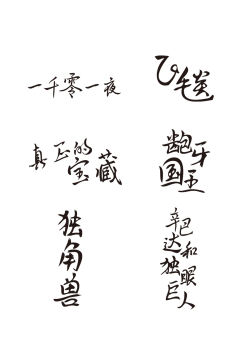 一千零一夜
飞毯
真正的
宝藏
龅牙
国王
独角兽
辛巴达和
独眼巨人